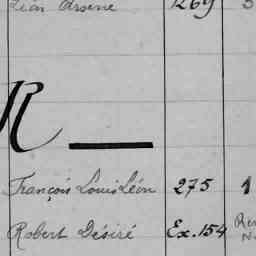 Léon Arsène 1269
R
François Louis Léon 275 1
Robert Désiré Ex. 154